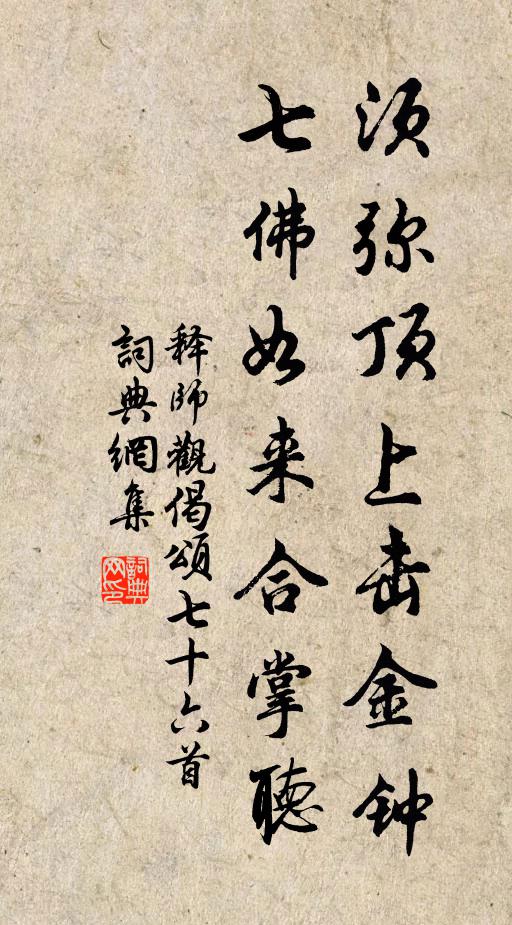 须弥顶上击金钟
七佛如来合掌聽
释师觀偈頌七十六首
詞典網集
詞典网印